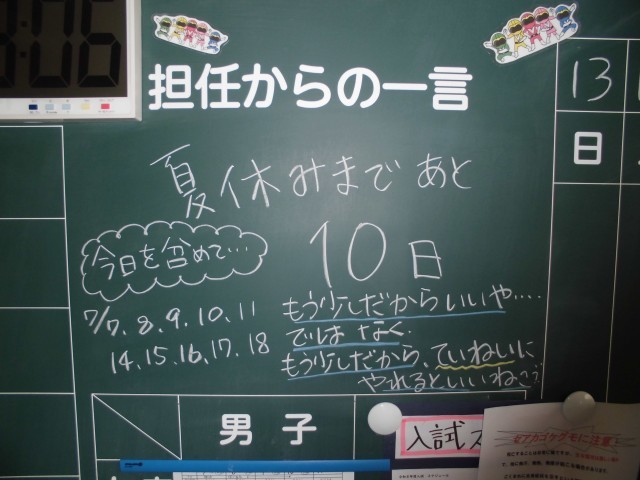 06
担任からの一言
13
日
夏休みまで あと
10日
今日を含めて…
7/7、8、9、10、11
14、15、16、17、18
もう少しだからいいや‥‥
ではなく
もう少しだから、ていねいに
やれるといいねこ?
男子
入試
セアカゴケグモに注意